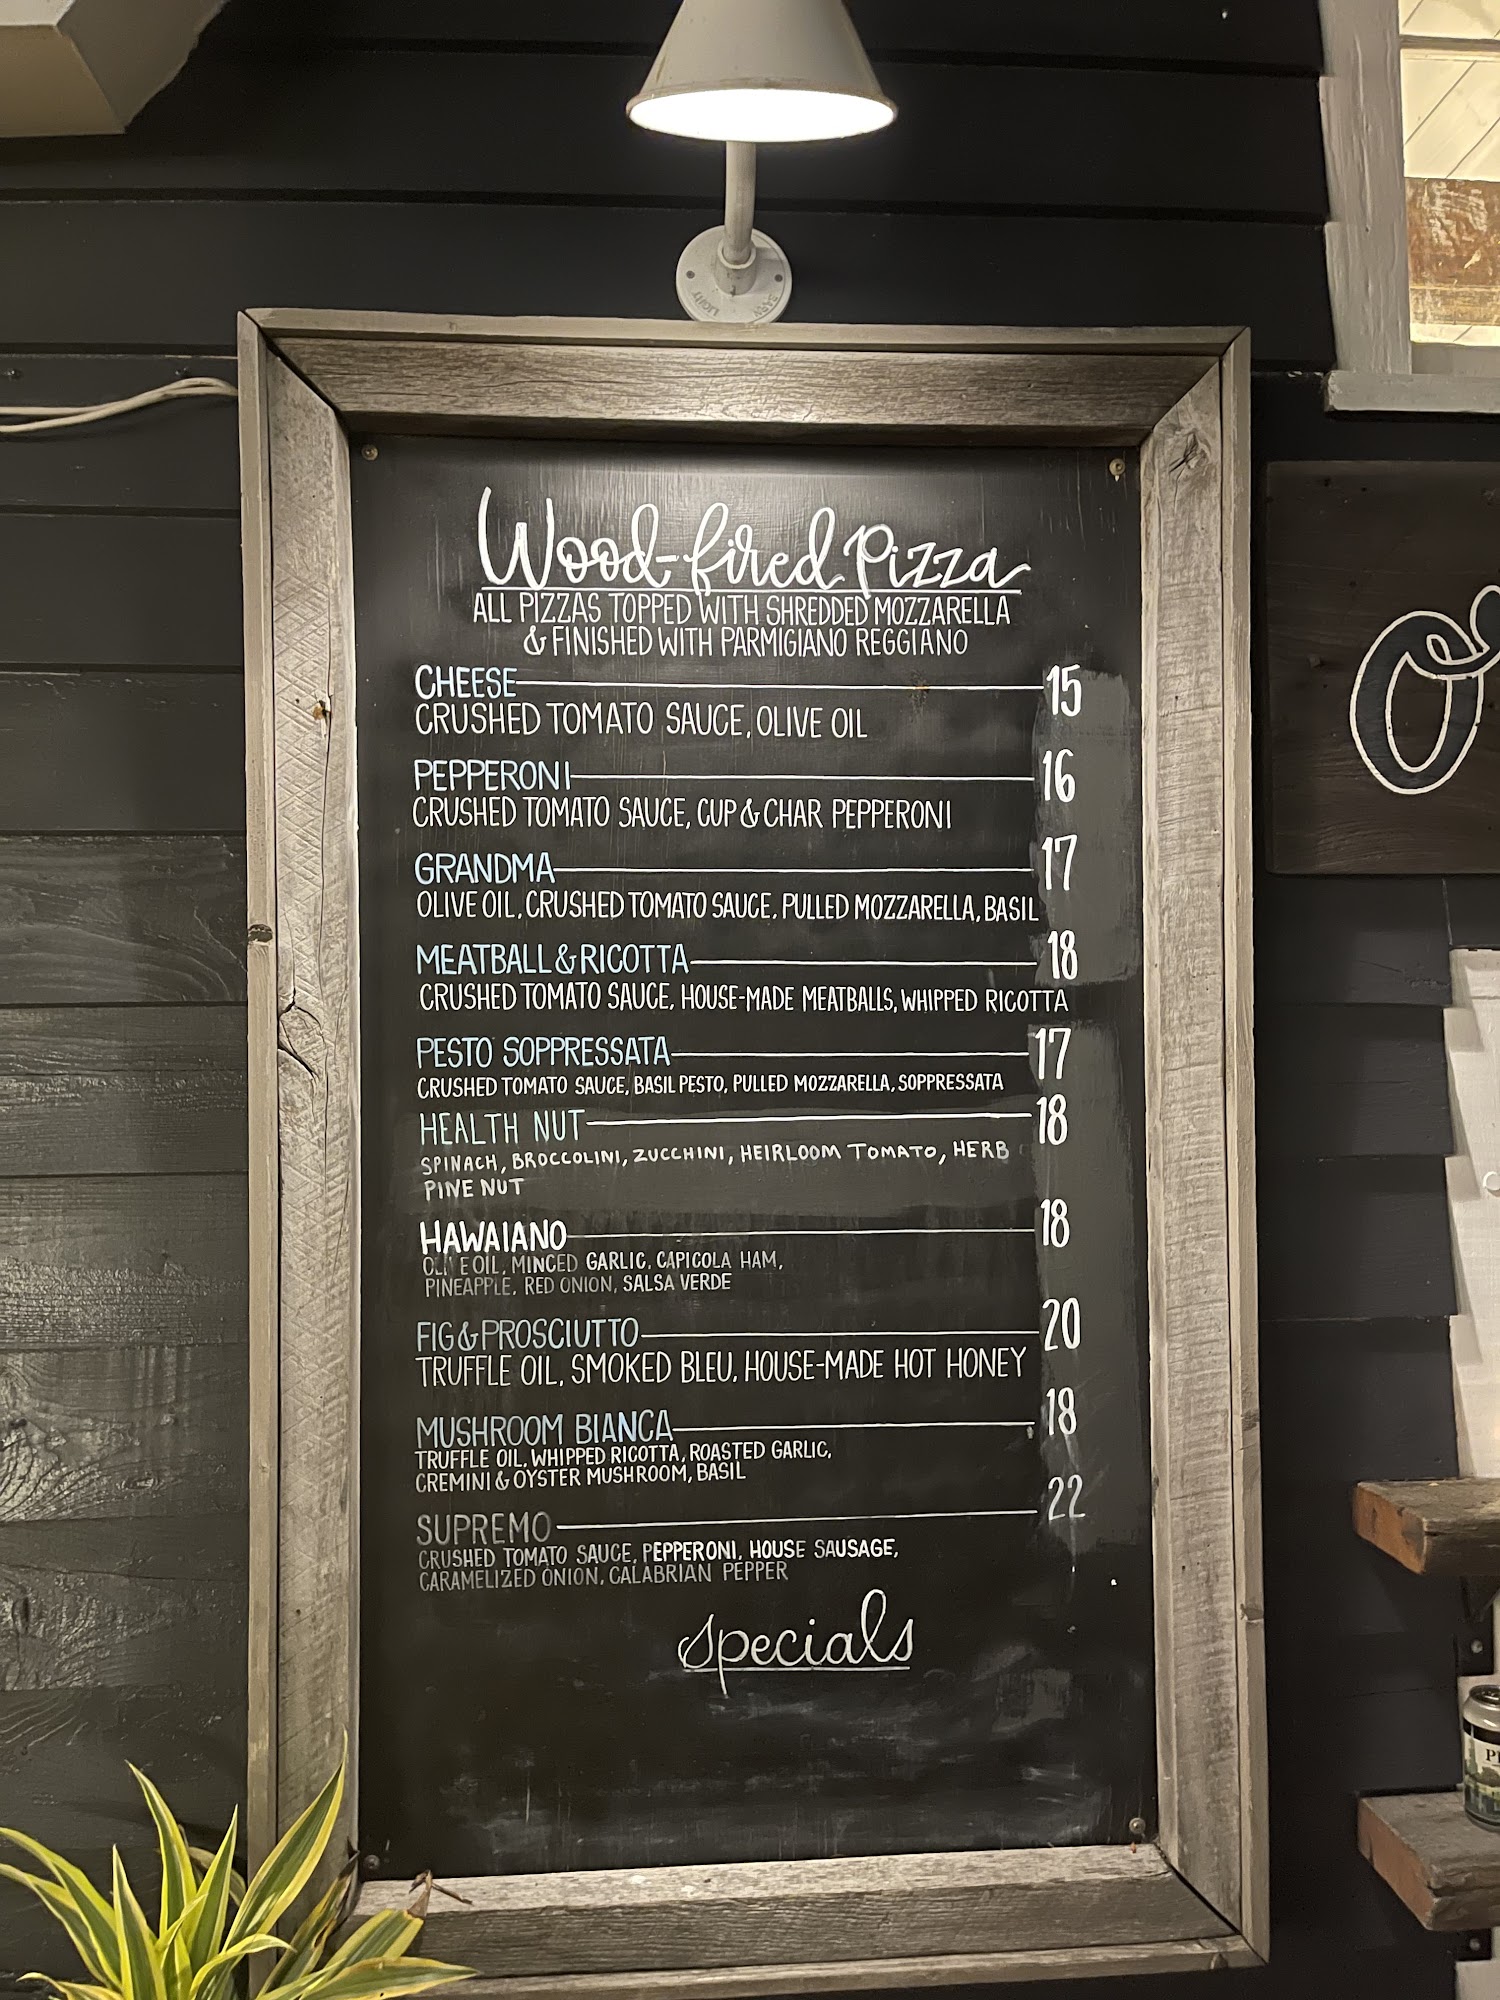 BARN
LIGHT
Wood-fired Pizza
ALL PIZZAS TOPPED WITH SHREDDED MOZZARELLA
& FINISHED WITH PARMIGIANO REGGIANO
CHEESE 15
CRUSHED TOMATO SAUCE, OLIVE OIL
PEPPERONI 16
CRUSHED TOMATO SAUCE, CUP & CHAR PEPPERONI
GRANDMA 17
OLIVE OIL, CRUSHED TOMATO SAUCE, PULLED MOZZARELLA, BASIL
MEATBALL & RICOTTA 18
CRUSHED TOMATO SAUCE, HOUSE-MADE MEATBALLS, WHIPPED RICOTTA
PESTO SOPPRESSATA 17
CRUSHED TOMATO SAUCE, BASIL PESTO, PULLED MOZZARELLA, SOPPRESSATA
HEALTH NUT 18
SPINACH, BROCCOLINI, ZUCCHINI, HEIRLOOM TOMATO, HERB
PINE NUT
HAWAIANO 18
OLIVE OIL, MINCED GARLIC, CAPICOLA HAM,
PINEAPPLE, RED ONION, SALSA VERDE
FIG & PROSCIUTTO 20
TRUFFLE OIL, SMOKED BLEU, HOUSE-MADE HOT HONEY
MUSHROOM BIANCA 18
TRUFFLE OIL, WHIPPED RICOTTA, ROASTED GARLIC,
CREMINI & OYSTER MUSHROOM, BASIL
SUPREMO 22
CRUSHED TOMATO SAUCE, PEPPERONI, HOUSE SAUSAGE,
CARAMELIZED ONION, CALABRIAN PEPPER
specials